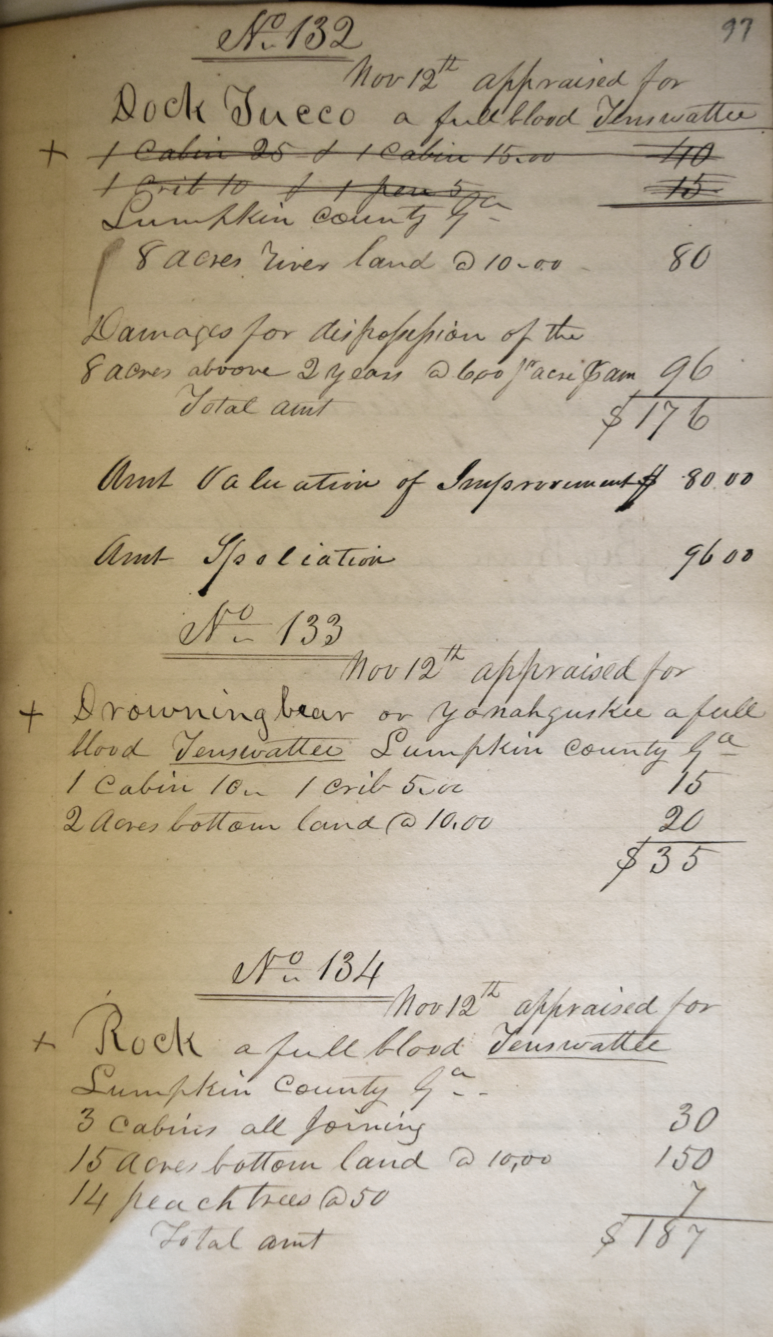 97
No. 132
Nov 12th appraised for
Dock Tucco a full blood Tenswattee
+ 1 Cabin 25 & 1 Cabin 15.00 40
1 Crib 10 & 1 pen 5 15
Lumpkin county Ga
8 acres river land @ 10.00 80
Damages for dispossession of the
8 acres aboove 2 years @ 6,00 pr acre 96
Total amt $176
Amt Valuation of Improvement $ 80.00
Amt Spoliation 96 00
No. 133
Nov 12th appraised for
+ Drowning bear or Yonahguskee a full
blood Tenswattee Lumpkin county Ga
1 Cabin 10.. 1 crib 5.00 15
2 Acres bottom land @ 10.00 20
$35
No. 134
Nov 12th appraised for
+ Rock a full blood Tenswattee
Lumpkin County Ga
3 Cabins all Joining 30
15 Acres bottom land @ 10,00 150
14 peach trees @ 50 7
Total amt $187